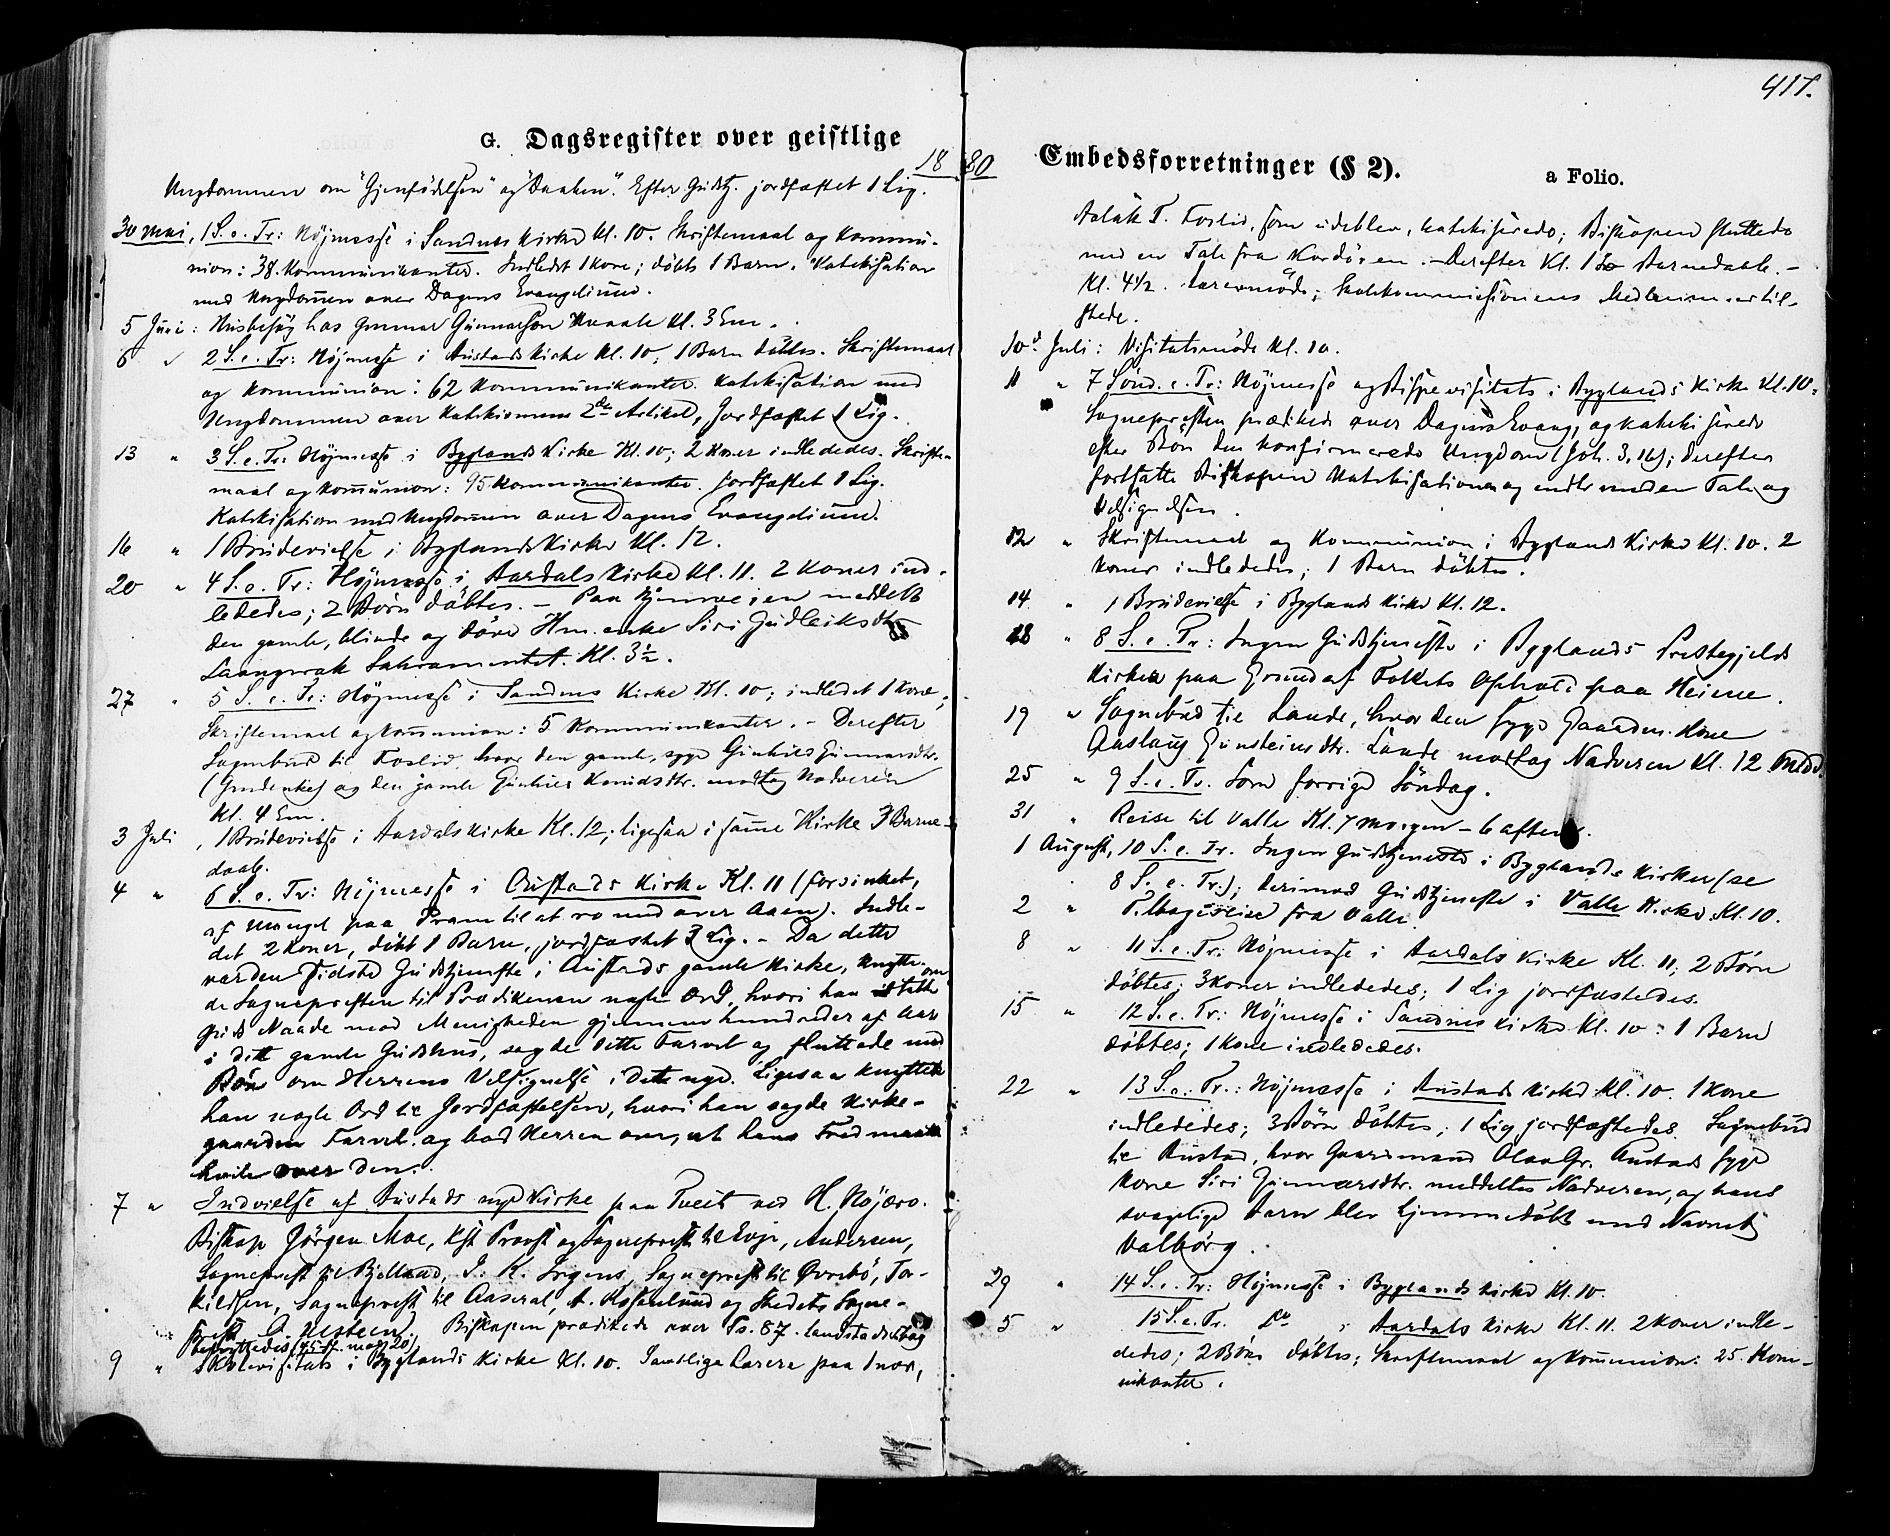 417.
G. Dagsregister over geistlige
18 80
Ungdommen om "Gjenfödelsen" og "Daaben". Efter Gudstj. jordfæstet 1 Lig.
30 Mai, 1 S. e. Tr: Höjmesse i Sandnes Kirke Kl. 10. Skriftemaal og Kommu-
nion: 38 Kommunikanter. Indledet 1 Kone; döbt 1 Barn. Katekisation
med Ungdommen over Dagens Evangelium.
5 Juni: Husbesög hos Gunnar Gunnarson Kl. 3 Em.
6 " 2 S. e. Tr: Höjmesse i Austads Kirke Kl. 10; 1 Barn döbtes. Skriftemaal
og Kommunion: 62 Kommunikanter. Katekisation med
Ungdommen over Katekismens 2de Artikel, Jordfæstet 1 Lig.
13 " 3 S. e. Tr: Höjmesse i Byglands Kirke Kl. 10; 2 Koner indlededes. Skrifte-
maal og Kommunion: 95 Kommunikanter. Jordfæstet 1 Lig.
Katekisation med Ungdommen over Dagens Evangelium.
16 " 1 Brudevielse i Byglands Kirke Kl. 12.
20 " 4 S. e. Tr: Höjmesse i Aardals Kirke Kl. 11. 2 Koner ind-
lededes; 2 Börn döbtes. – Paa Hjemveien meddelt
den gamle, blinde og döve Hm. enke Siri Gudleiksdtr
Laangerak Sakramentet. Kl. 3½.
27 " 5 S. e. Tr: Höjmesse i Sandnes Kirke Kl. 10; indledet 1 Kone;
Skriftemaal og Kommunion: 5 Kommunikanter. – Derefter
Sognebud til Foslid, hvor den gamle, syge Gunhild Gunnarsdtr.
og den gamle Knudsdtr. modtog Nadveren
Kl. 4 Em.
3 Juli, 1 Brudevielse i Aardals Kirke Kl. 12; ligesaa i samme Kirke 3 Barne-
daab.
4 " 6 S. e. Tr: Höjmesse i Austads Kirke Kl. 11 (forsinket,
af Mangel paa Pram til at ro med over Aaen). Indle-
det 2 Koner, döbt 1 Barn, jordfæstet 3 Lig. – Da dette
var den sidste Gudstjeneste i Austads gamle Kirke, knytte-
de Sognepresten til Prædikenen nogle Ord, hvori han takked om
Guds Naade mod Menigheden gjennem hundreder af Aar
i dette gamle Gudshus, sagde dette Farvel og sluttede med
Bön om Herrens Velsignelse i dette nye. Ligesaa knyttede
han nogle Ord til Jordfæstelsen, hvori han sagde Kirke-
gaarden Farvel og bad Herren om, at hans Fred maatte
hvile over den.
7 " Indvielse af Austads nye Kirke paa Tveit ved H. Höjærv.
Biskop Jörgen Moe, Kst Provst og Sogneprest til Evje, Andersen,
Sogneprest til Bjelland, J. K. Irgens, Sogneprest til Övrebö, Tor-
kildsen, Sogneprest til Aaseral, A. Rosenlund og Stedets Sogne-
prest. Biskopen prædikede over Ps. 87.
9 " Skolevisitats i Byglands Kirke Kl. 10. Samtlige Lærere paa 1 nær,
Embedsforretninger (§ 2).
a Folio.
Aslak T. Foslid, som udeblev, katekiserede; Biskopen sluttede
med en Tale fra Kordören. – Derefter Kl. 1 Barnedaab. –
Kl. 4½ Læremöde; Skolekommissionens Medlemmer til-
stede.
10de Juli: Visitatsmöde Kl. 10.
11 " 7 Sönd. e. Tr: Höjmesse og Bispevisitats i Byglands Kirke Kl. 10.
Sognepresten prædikede over Dagens Evang. og katekiserede
efter Bön den konfirmerede Ungdom (Joh. 3, 16); derefter
fortsatte Biskopen Katekisationen og endte med en Tale og
Velsignelsen.
12 " Skriftemaal og Kommunion i Byglands Kirke Kl. 10. 2
Koner indlededes; 1 Barn döbtes.
14 " 1 Brudevielse i Byglands Kirke Kl. 12.
18 " 8 S. e. Tr: Ingen Gudstjeneste i Byglands Prestegjelds
Kirker paa Grund af Folkets Ophold paa Heiene.
19 " Sognebud til Lande, hvor den syge Gaardm. Kone
Aaslaug Gunsteinsdtr. Lande modtog Nadveren Kl. 12 Midd.
25 " 9 S. e. Tr. Som forrige Söndag.
31 " Reise til Valle Kl. 7 Morgen – 6 aften.
1 August, 10 S. e. Tr. Ingen Gudstjeneste i Byglands Kirker (se
8 S. e. Tr.); derimod Gudstjeneste i Valle Kirke Kl. 10.
2 " Tilbagereise fra Valle.
8 " 11 S. e. Tr: Höjmesse i Aardals Kirke Kl. 11; 2 Börn
döbtes; 3 Koner indlededes; 1 Lig jordfæstedes.
15 " 12 S. e. Tr: Höjmesse i Sandnes Kirke Kl. 10: 1 Barn
döbtes; 1 Kone indlededes.
22 " 13 S. e. Tr.: Höjmesse i Austads Kirke Kl. 10. 1 Kone
indlededes; 3 Börn döbtes; 1 Lig jordfæstedes. Sognebud
til Austad, hvor Gaardmand Olav Gr. Austads syge
Kone Siri Gunnarsdtr. meddeltes Nadveren, og hans
svagelige Barn blev hjemmedöbt med Navnet
Valborg.
29 " 14 S. e. Tr: Höjmesse i Byglands Kirke Kl. 10.
5 " 15 S. e. Tr. Do i Aardals Kirke Kl. 11. 2 Koner indle-
dedes; 2 Börn döbtes; Skriftemaal og Kommunion: 25 Kom-
nikanter.